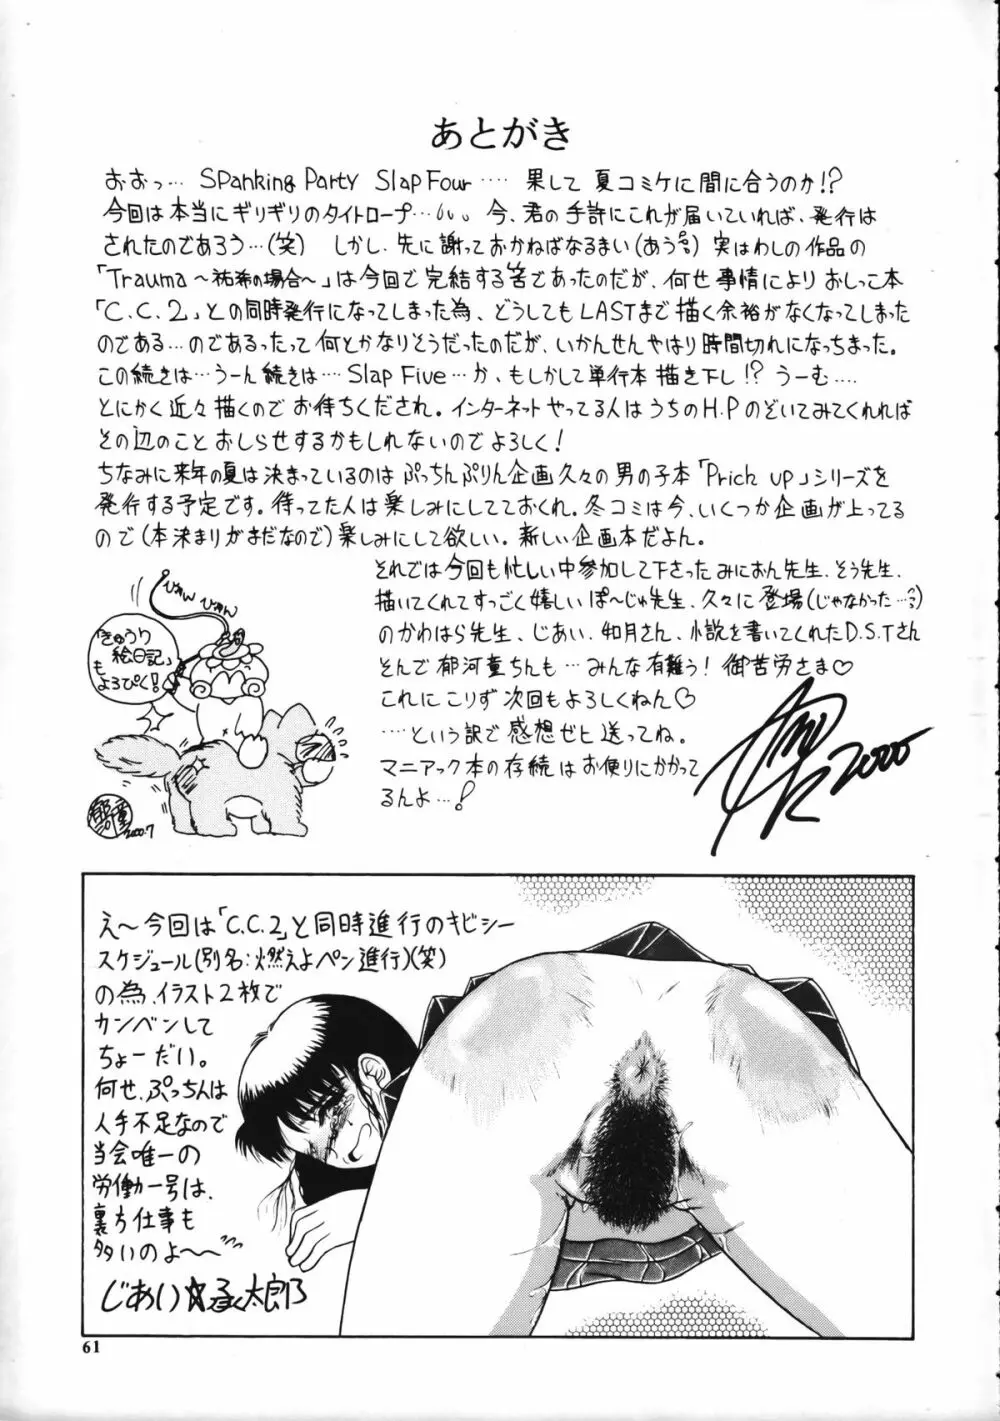 あとがき
おおっ… Spanking Party Slap Four …… 果して 夏コミケに間に合うのか!?
今回は本当にギリギリのタイトロープ… 今、君の手許にこれが届いていれば、発行は
されたのであろう…(笑) しかし、先に謝っておかねばなるまい(あうぅ) 実はわしの作品の
「Trauma～祐希の場合～」は今回で完結する筈であったのだが、何せ事情により おしっこ本
「C.C.2」との同時発行になってしまった為、どうしてもLASTまで描く余裕がなくなってしまった
のである…のであるったって 何とかなりそうだったのだが、いかんせんやはり時間切れになっちまった。
この続きは…うーん続きは… Slap Five…か、もしかして単行本 描き下し!? うーむ….
とにかく近々描くので お待ちくだされ。インターネットやってる人はうちのH.Pのぞいてみてくれれば
その辺のこと おしらせするかもしれないのでよろしく!
ちなみに来年の夏は決まっているのは ぷっちんぷりん企画久々の男の子本「Prich up」シリーズを
発行する予定です。待ってた人は楽しみにしてておくれ。冬コミは今、いくつか企画が上ってる
ので(本決まりがまだなので)楽しみにして欲しい。新しい企画本だよん。
それでは今回も忙しい中参加して下さった みにおん先生、そう先生、
描いてくれてすっごく嬉しい ぽ～じゅ先生、久々に登場(じゃなかった…)
のかわはら先生、じあい、如月さん、小説を書いてくれたD.S.Tさん
そんで郁河童ちんも…みんな有難う! 御苦労さま♡
これにこりず次回もよろしくねん♡
….という訳で感想ぜヒ送ってね。
マニアック本の存続はお便りにかかって
るんよ…!
ぴょん
ぴょん
「きゅうり
絵日記」
も
よろぴく!
2000.7
2000
え～今回は「C.C.2」と同時進行のキビシー
スケジュール(別名:燃えよペン進行)(笑)
の為、イラスト2枚で
カンベンして
ちょーだい。
何せ、ぷっちんは
人手不足なので
当会唯一の
労働一号は、
裏方仕事も
多いのよ～～
じあい☆承太郎
61